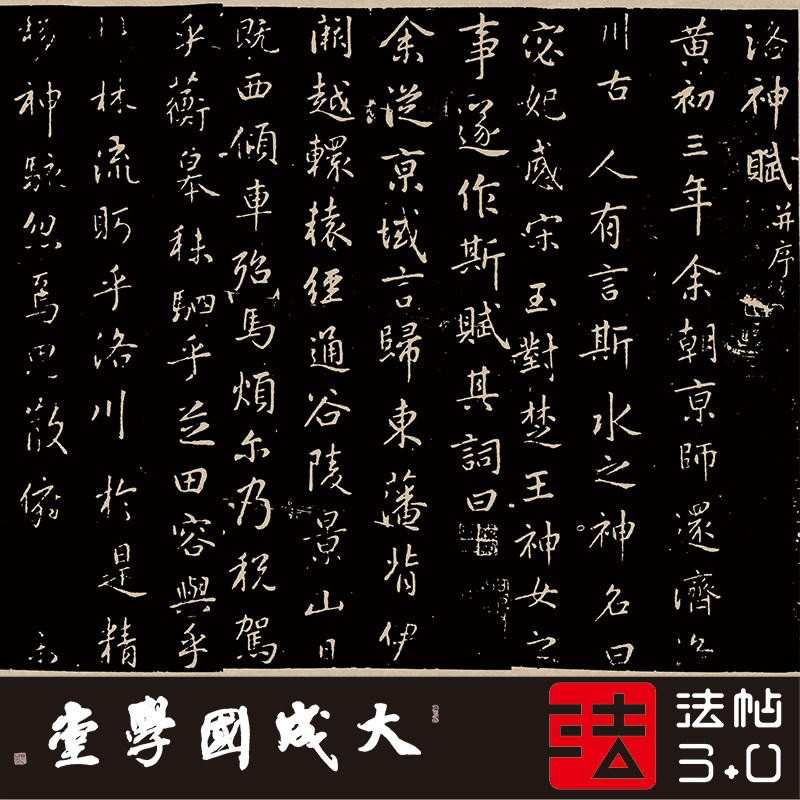 洛神賦并序
黄初三年余朝京師還濟洛
川古人有言斯水之神名曰
宓妃感宋玉對楚王神女之
事遂作斯賦其詞曰
余從京域言歸東藩背伊
闕越轘轅經通谷陵景山日
既西傾車殆馬煩尒乃税駕
乎蘅皋秣駟乎芝田容與乎
林流眄乎洛川於是精
移神駭忽焉思散俯
大成國學堂
法
法帖
3.0